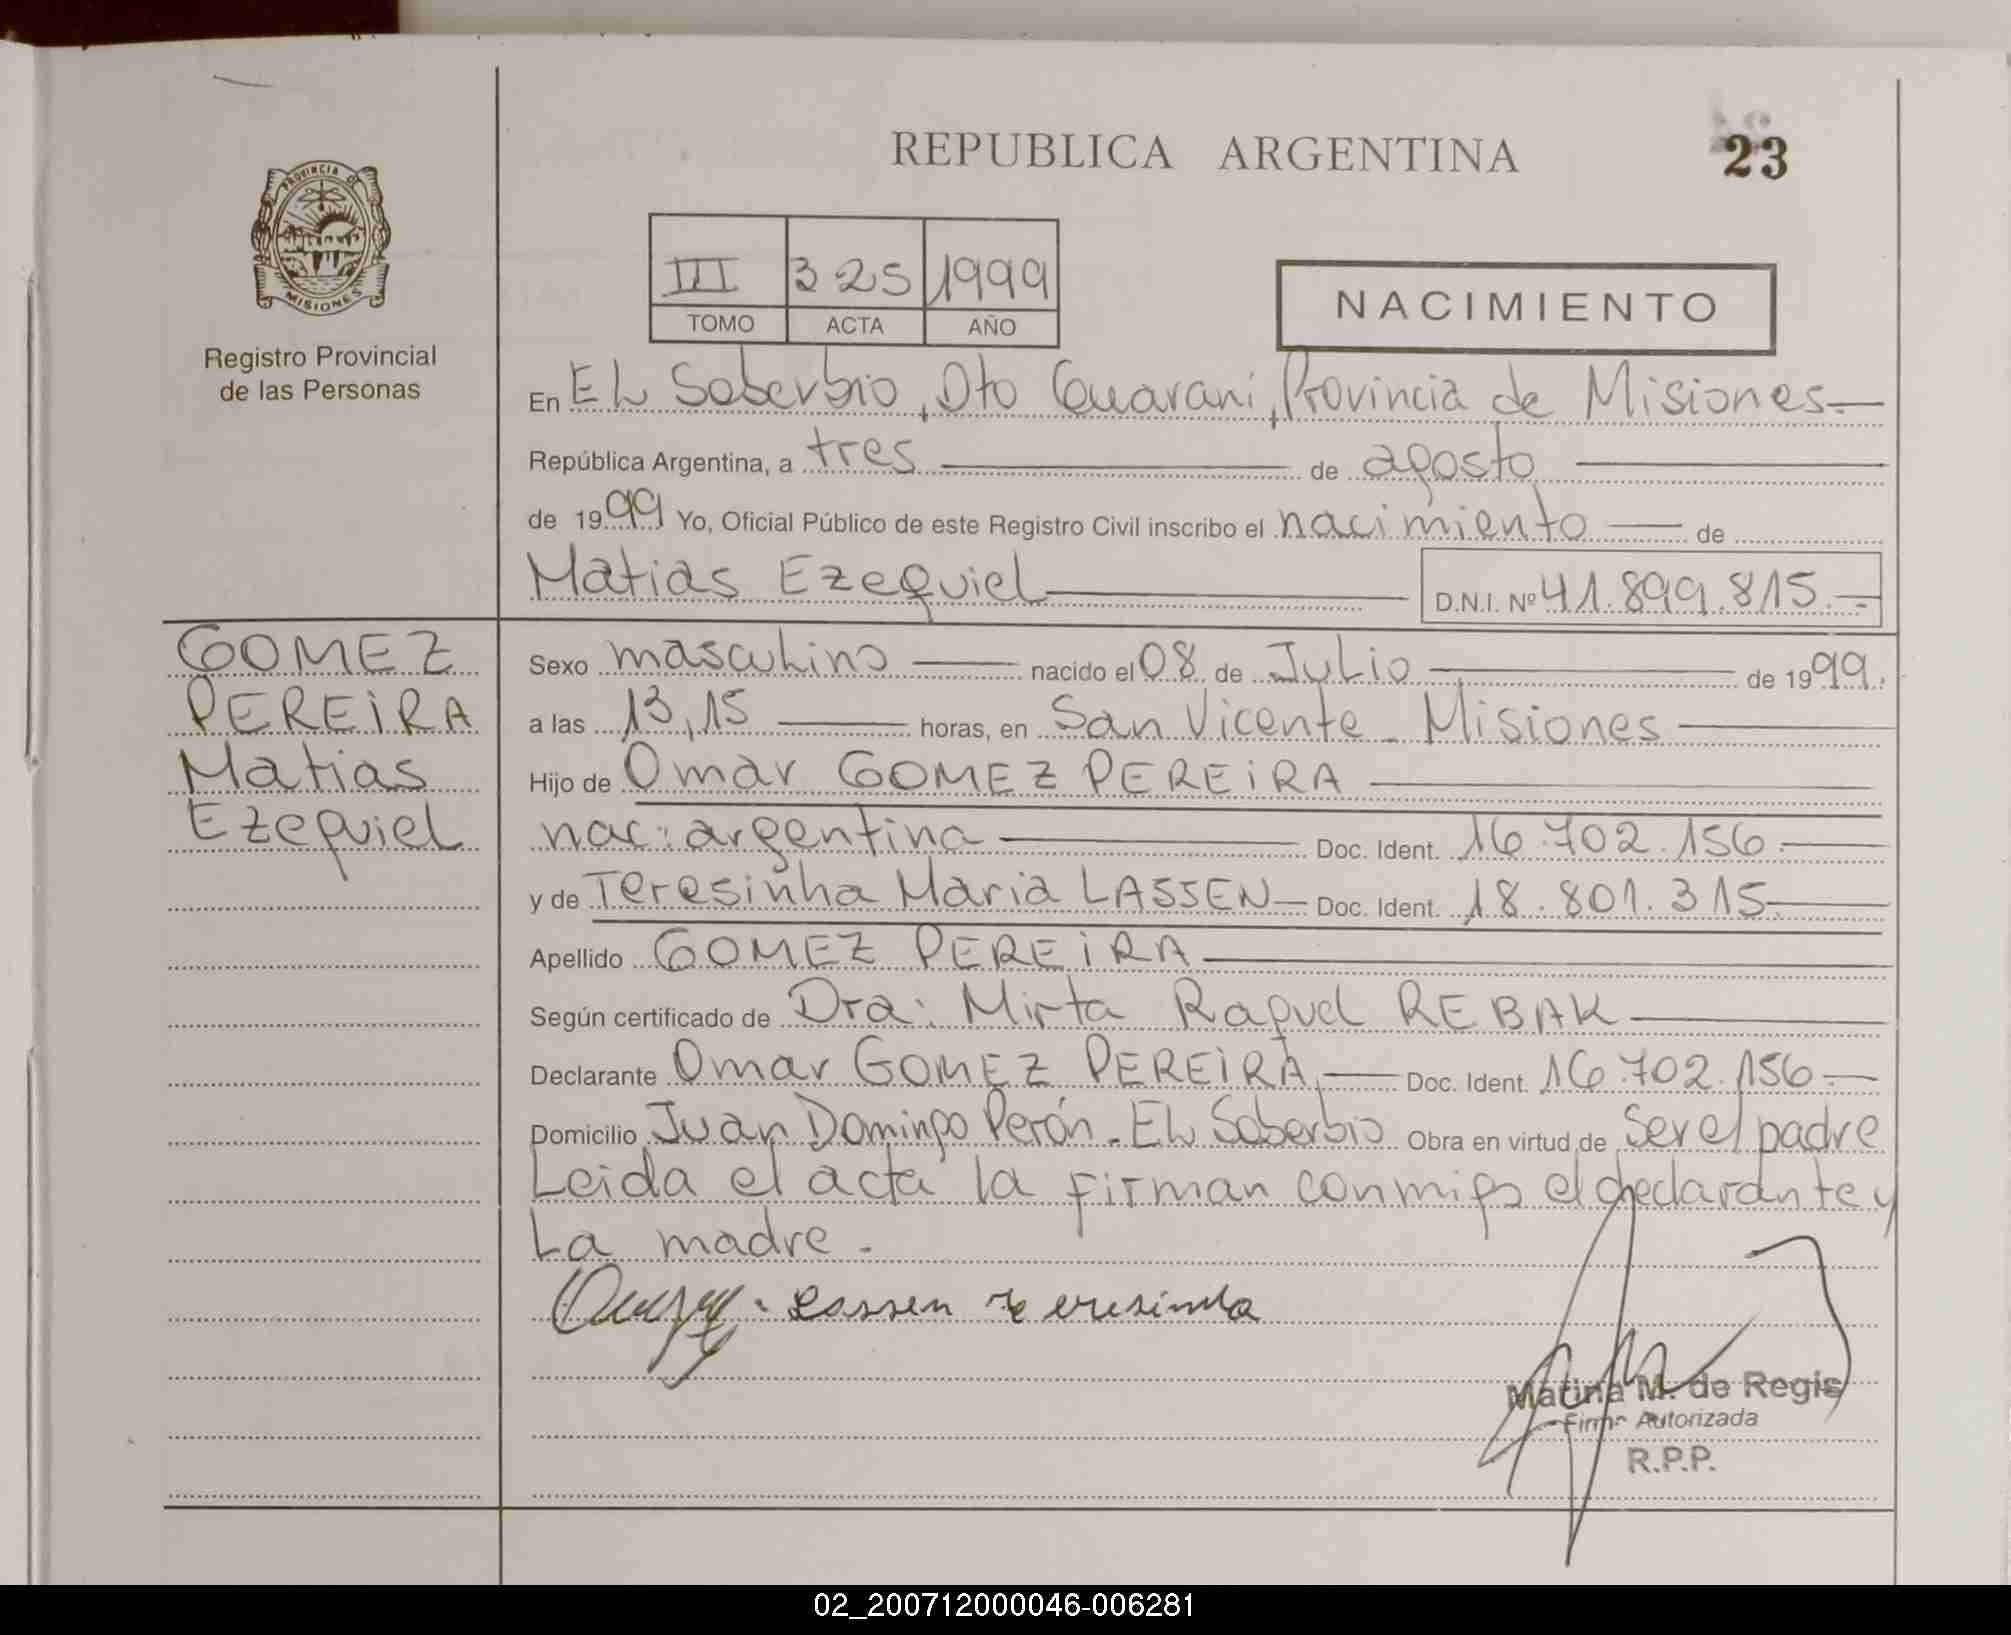 REPUBLICA ARGENTINA
23
PROVINCIA DE
MISIONES
Registro Provincial
de las Personas
III 325 1999
TOMO ACTA AÑO
NACIMIENTO
En EL Soberbio, Dto Guarani, Provincia de Misiones.
República Argentina, a tres de agosto
de 1999 Yo, Oficial Público de este Registro Civil inscribo el nacimiento de
Matias Ezequiel D.N.I. Nº 41.899.815.-
GOMEZ
PEREIRA
Matias
Ezequiel
Sexo masculino nacido el 08 de Julio de 1999.
a las 13,15 horas, en San Vicente - Misiones
Hijo de Omar GOMEZ PEREIRA
nac: argentina Doc. Ident. 16.702.156.
y de Teresinha Maria LASSEN Doc. Ident. 18.801.315.
Apellido GOMEZ PEREIRA
Según certificado de Dra: Mirta Raquel REBAK
Declarante Omar GOMEZ PEREIRA Doc. Ident. 16.702.156
Domicilio Juan Domingo Perón - EL Soberbio Obra en virtud de ser el padre
Leida el acta la firman conmigo el declarante y
La madre.
Lassen Teresinha
Matina M. de Regis
Firma Autorizada
R.P.P.
02_200712000046-006281